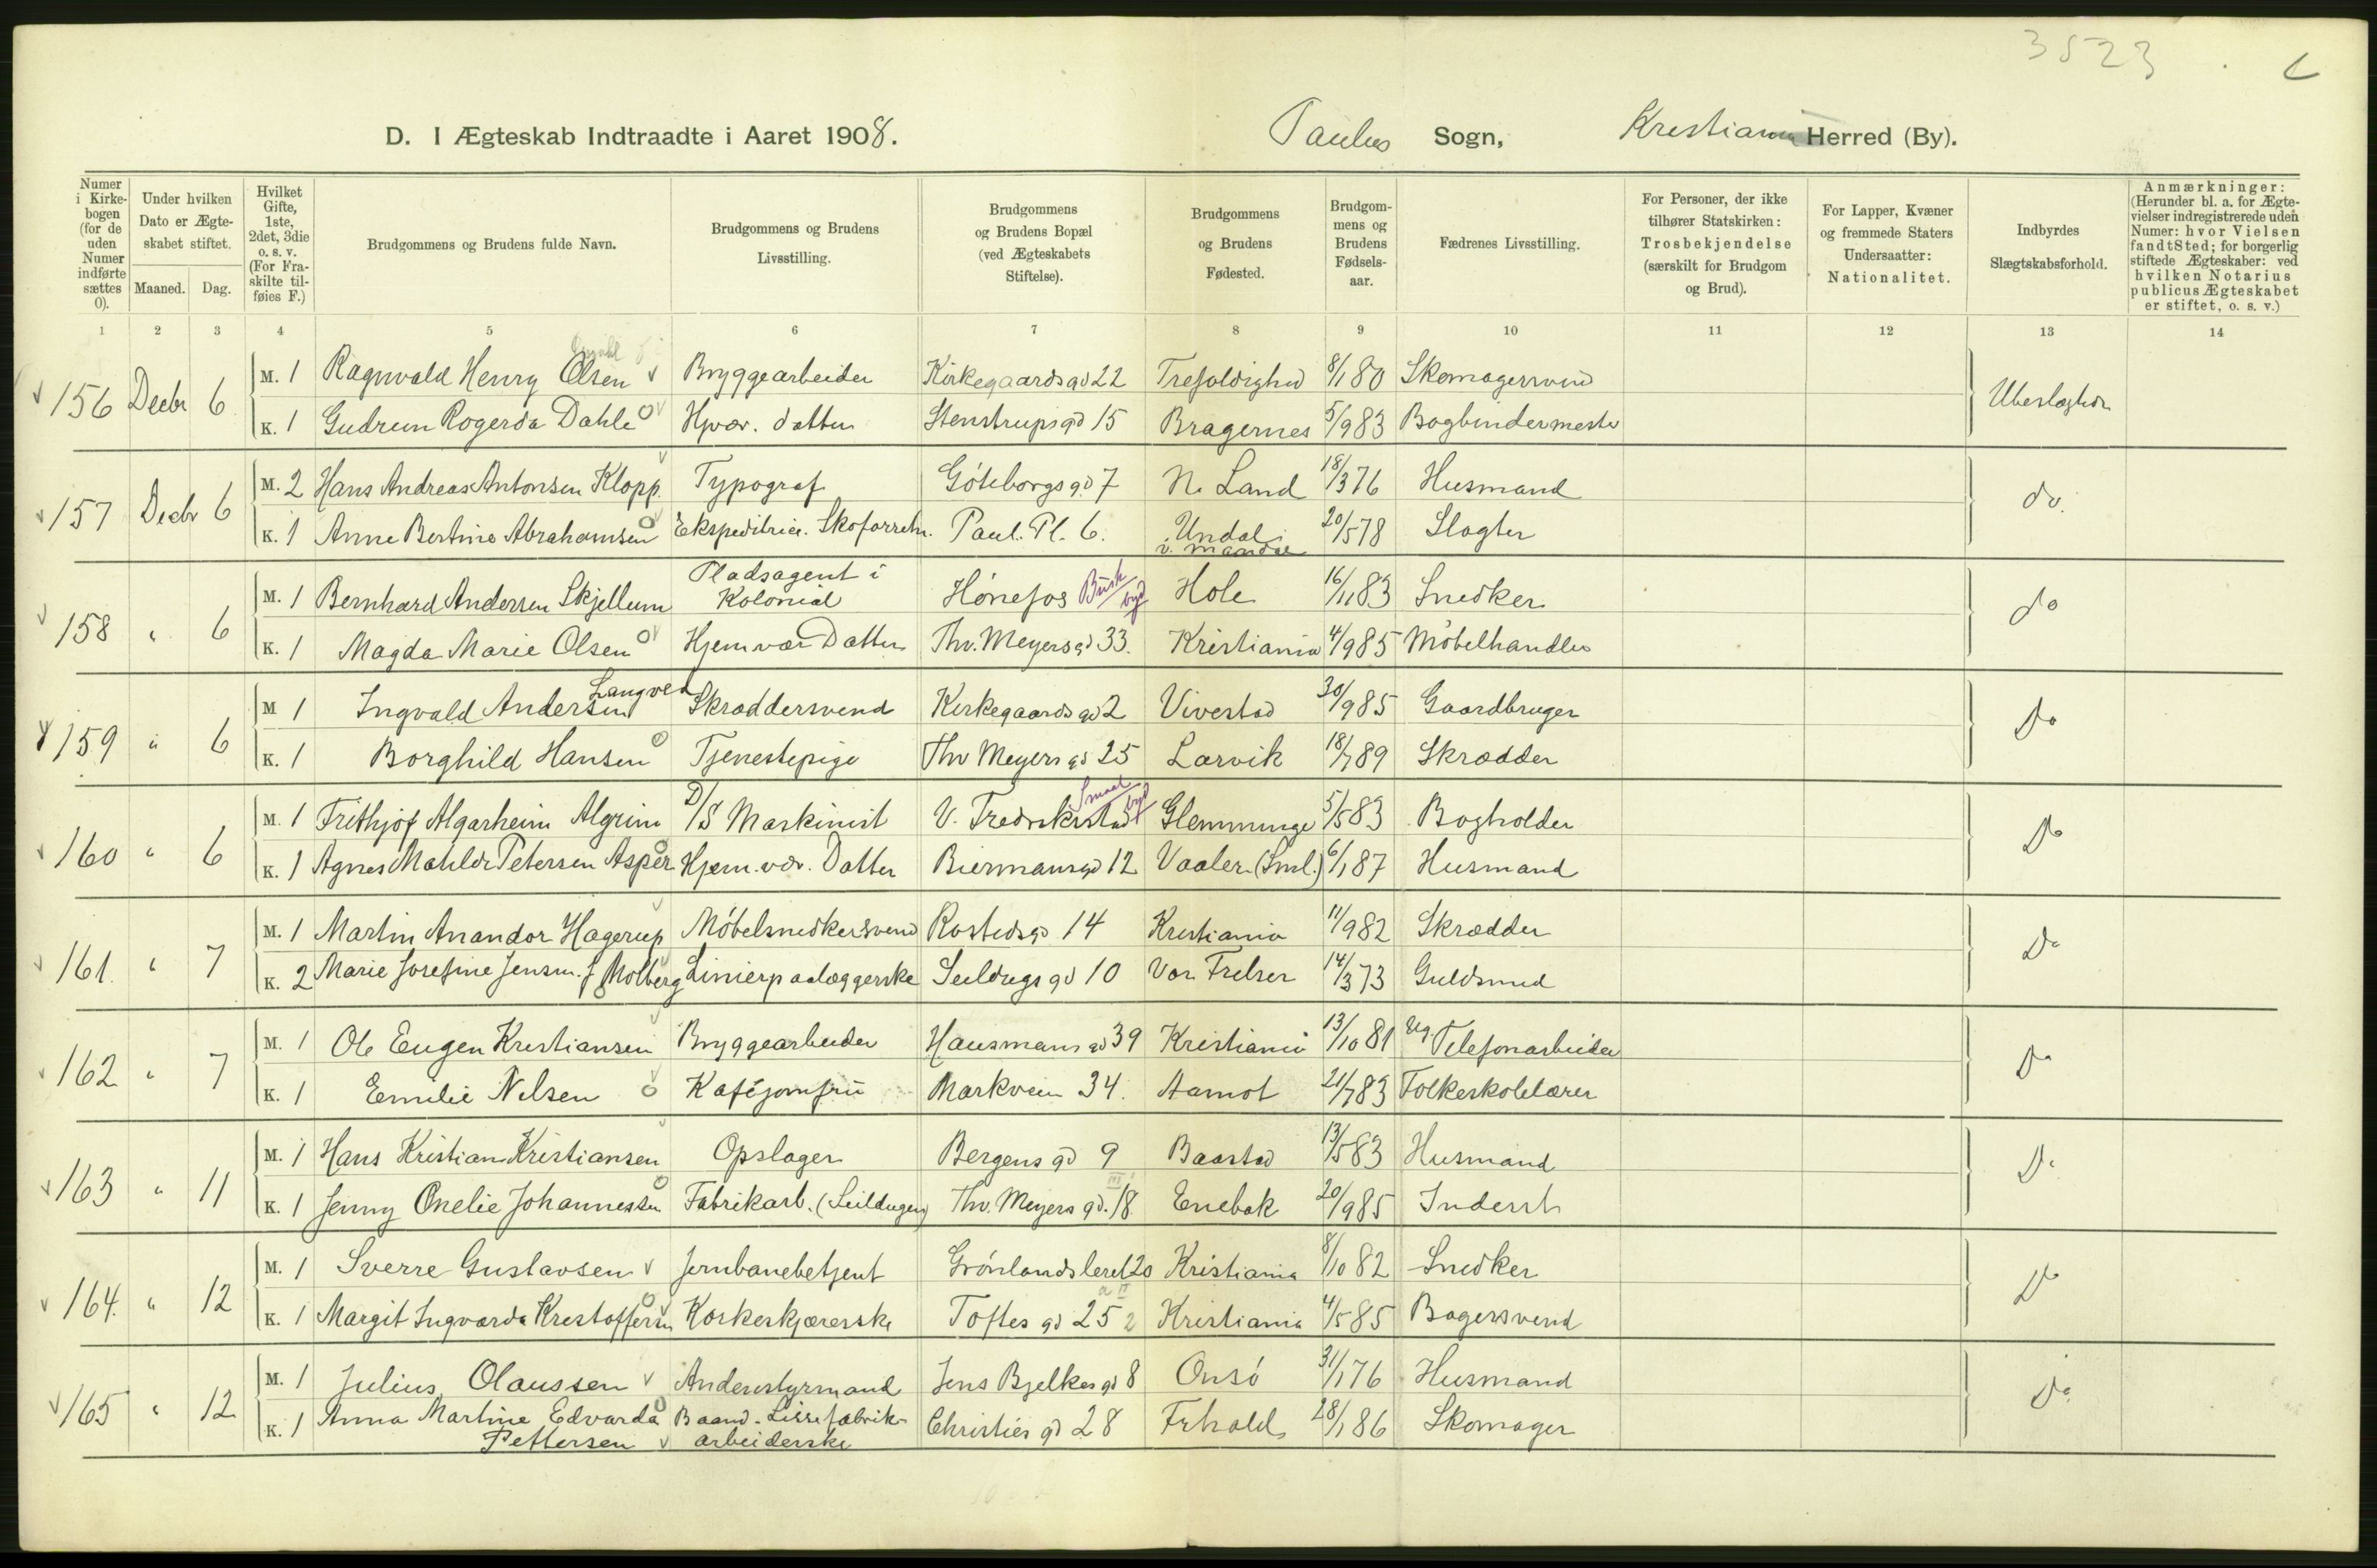 3523
D. I Ægteskab Indtraadte i Aaret 1908. Paulus Sogn, Kristiania Herred (By).
Numer i Kirkebogen (for de uden Numer indførte sættes 0).
Under hvilken Dato er Ægteskabet stiftet.
Maaned. Dag.
Hvilket Gifte, 1ste, 2det, 3die o. s. v. (For Fraskilte tilføies F.)
Brudgommens og Brudens fulde Navn.
Brudgommens og Brudens Livsstilling.
Brudgommens og Brudens Bopæl (ved Ægteskabets Stiftelse).
Brudgommens og Brudens Fødested.
Brudgommens og Brudens Fødselsaar.
Fædrenes Livsstilling.
For Personer, der ikke tilhører Statskirken: Trosbekjendelse (særskilt for Brudgom og Brud).
For Lapper, Kvæner og fremmede Staters Undersaatter: Nationalitet.
Indbyrdes Slægtskabsforhold.
Anmærkninger: (Herunder bl. a. for Ægtevielser indregistrerede uden Numer: hvor Vielsen fandt Sted; for borgerlig stiftede Ægteskaber: ved hvilken Notarius publicus Ægteskabet er stiftet, o. s. v.)
1 2 3 4 5 6 7 8 9 10 11 12 13 14
156 Decbr 6 M. 1 Ragnvald Henry Olsen Bryggearbeider Kirkegaardsgd 22 Trefoldighed 8/1 80 Skomagersvend Ubeslægtede
K. 1 Gudrun Rogerda Dahle Hjvær. datter Stenstrupsgd 15 Bragernes 5/9 83 Bogbindermester
157 Decbr 6 M. 2 Hans Andreas Antonsen Klopp. Typograf Göteborgsgd 7 N. Land 18/3 76 Husmand do.
K. 1 Anne Bertine Abrahamsen Ekspeditrice. Skoforretn. Paul. Pl. 6. Undal v. Mandal 20/5 78 Slagter
158 " 6 M. 1 Bernhard Andersen Skjellum Pladsagent i Kolonial Hönefos Busk byd Hole 16/11 83 Snedker do
K. 1 Magda Marie Olsen Hjemvær Datter Thv. Meyersgd 33. Kristiania 4/9 85 Möbelhandler
159 " 6 M 1 Ingvald Andersen Langved Skræddersvend Kirkegaardsgd 2 Vivestad 30/9 85 Gaardbruger Do
K. 1 Borghild Hansen Tjenestepige Thv Meyersgd 25 Larvik 18/7 89 Skrædder
160 " 6 M. 1 Frithjof Algarheim Algrim D/S Maskinist V. Fredrikstad Smaal byd Glemminge 5/5 83 Bogholder Do
K. 1 Agnes Mathilde Petersen Asper Hjem. vær. Datter Biermansgd 12 Vaaler (Sml.) 6/1 87 Husmand
161. " 7 M. 1 Martin Anandor Hagerup Möbelsnedkersvend Rostedsgd 14 Kristiania 11/9 82 Skrædder Do
K. 2 Marie Josefine Jensen f. Molberg Linierpaalæggerske Seildugsgd 10 Vor Frelser 14/3 73 Guldsmed
162 " 7 M. 1 Ole Eugen Kristiansen Bryggearbeider Hausmansgd 39 Kristiania 13/10 81 Ug. Telefonarbeider Do
K. 1 Emilie Nilsen Kaféjomfru Markvein 34. Aamot 21/7 83 Folkeskolelærer
163 " 11 M. 1 Hans Kristian Kristiansen Opslager Bergensgd 9 Baastad 13/5 83 Husmand Do
K. 1 Jenny Onelie Johannessen Fabrikarb. (Seildugen) Thv. Meyers gd. 18 Enebak 20/9 85 Inderst
164. " 12 M. 1 Sverre Gustavsen Jernbanebetjent Grönlandsleret 20 Kristiania 8/10 82 Snedker Do
K. 1 Margit Ingvarda Kristoffersen Korkeskjærerske Toftes gd 25 Kristiania 4/5 85 Bagersvend
165 " 12 M. 1 Julius Olaussen Andenstyrmand Jens Bjelkesgd 8 Onsö 31/1 76 Husmand Do.
K. 1 Anna Martine Edvarda Pettersen Baand-Lissefabrikarbeiderske Christies gd 28 Frhald 28/1 86 Skomager